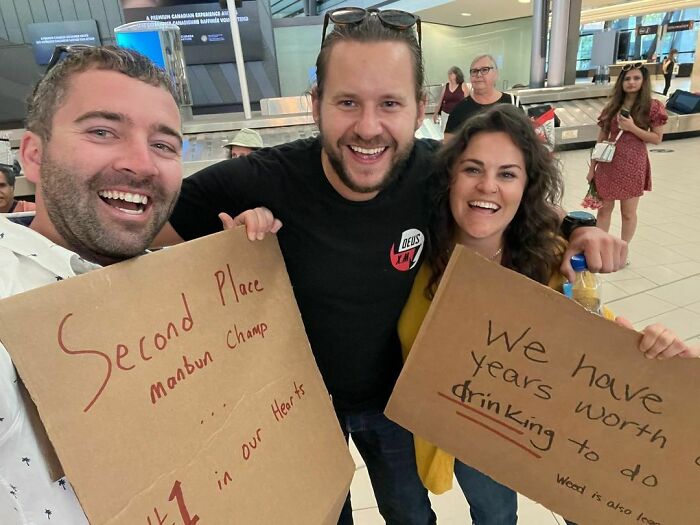 PREMIUM CANADIAN EXPERIENCE
Second Place
manbun Champ
...
#1 in our Hearts
DEUS
X.M.
We have
years worth
drinking to do
Weed is also